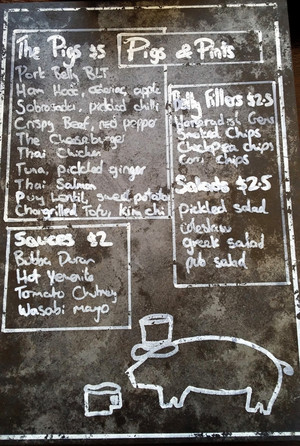 Pigs & Pints
The Pigs $5
Pork Belly BLT
Ham Hock, celeriac, apple
Sobrasada, pickled chilli
Crispy Beef, red pepper
The Cheeseburger
Thai Chicken
Tuna, pickled ginger
Thai Salmon
Puy Lentil, sweet potato
Chargrilled Tofu, Kimchi
Belly Fillers $2.5
Horseradish
Smoked Chips
Chickpea chips
Corn chips
Salads $2.5
Pickled salad
coleslaw
greek salad
pub salad
Sauces $2
Bubba
Hot
Tomato Chutney
Wasabi mayo